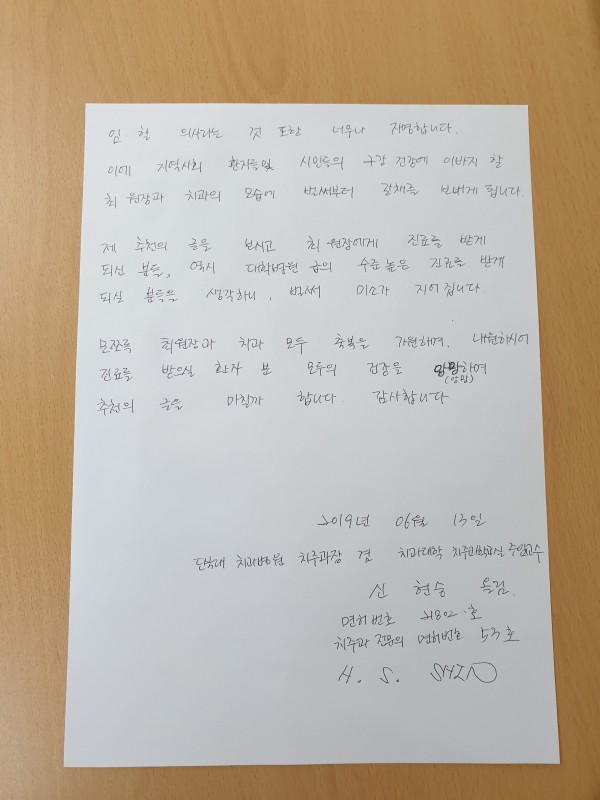 임 할 의사라는 것 또한 너무나 자명합니다.
이에 지역사회 환자들및 시민들의 구강 건강에 이바지 할
최 원장과 치과의 모습에 벌써부터 갈채를 보내게 됩니다.
제 추천의 글을 보시고 최 원장에게 진료를 받게
되신 분들, 역시 대학병원 급의 수준 높은 진료를 받게
되실 분들을 생각하니, 벌써 미소가 지어 집니다.
모쪼록 최원장과 치과 모두 축복을 기원하며, 내원하시어
진료를 받으실 환자 분 모두의 건승을 앙망하며
(앙망)
추천의 글을 마칠까 합니다. 감사합니다
2019년 06월 13일
단국대 치과병원 치주과장 겸 치과대학 치주과학교실 주임교수
신 현승 올림.
면허번호 호
치주과 전문의 면허번호 53호
H. S. SHIN